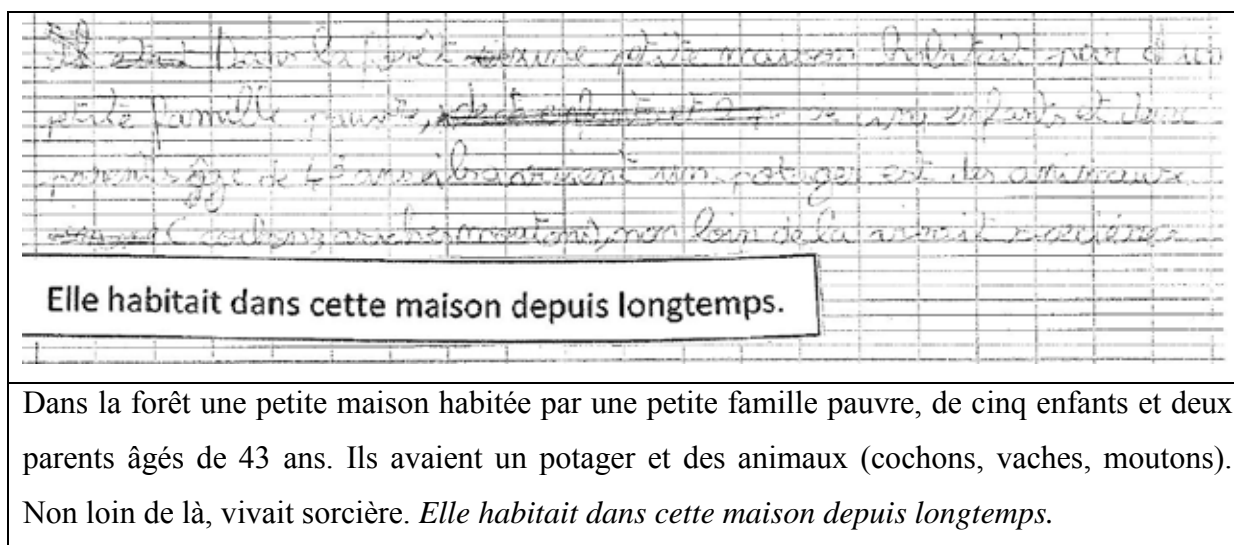 Dans la forêt une petite maison habitait par
petite famille pauvre, de cinq enfants et deux
parents âge de 43 ans un potager est des animaux
moutons), non loin de la vivait
Elle habitait dans cette maison depuis longtemps.
Dans la forêt une petite maison habitée par une petite famille pauvre, de cinq enfants et deux
parents âgés de 43 ans. Ils avaient un potager et des animaux (cochons, vaches, moutons).
Non loin de là, vivait sorcière. Elle habitait dans cette maison depuis longtemps.